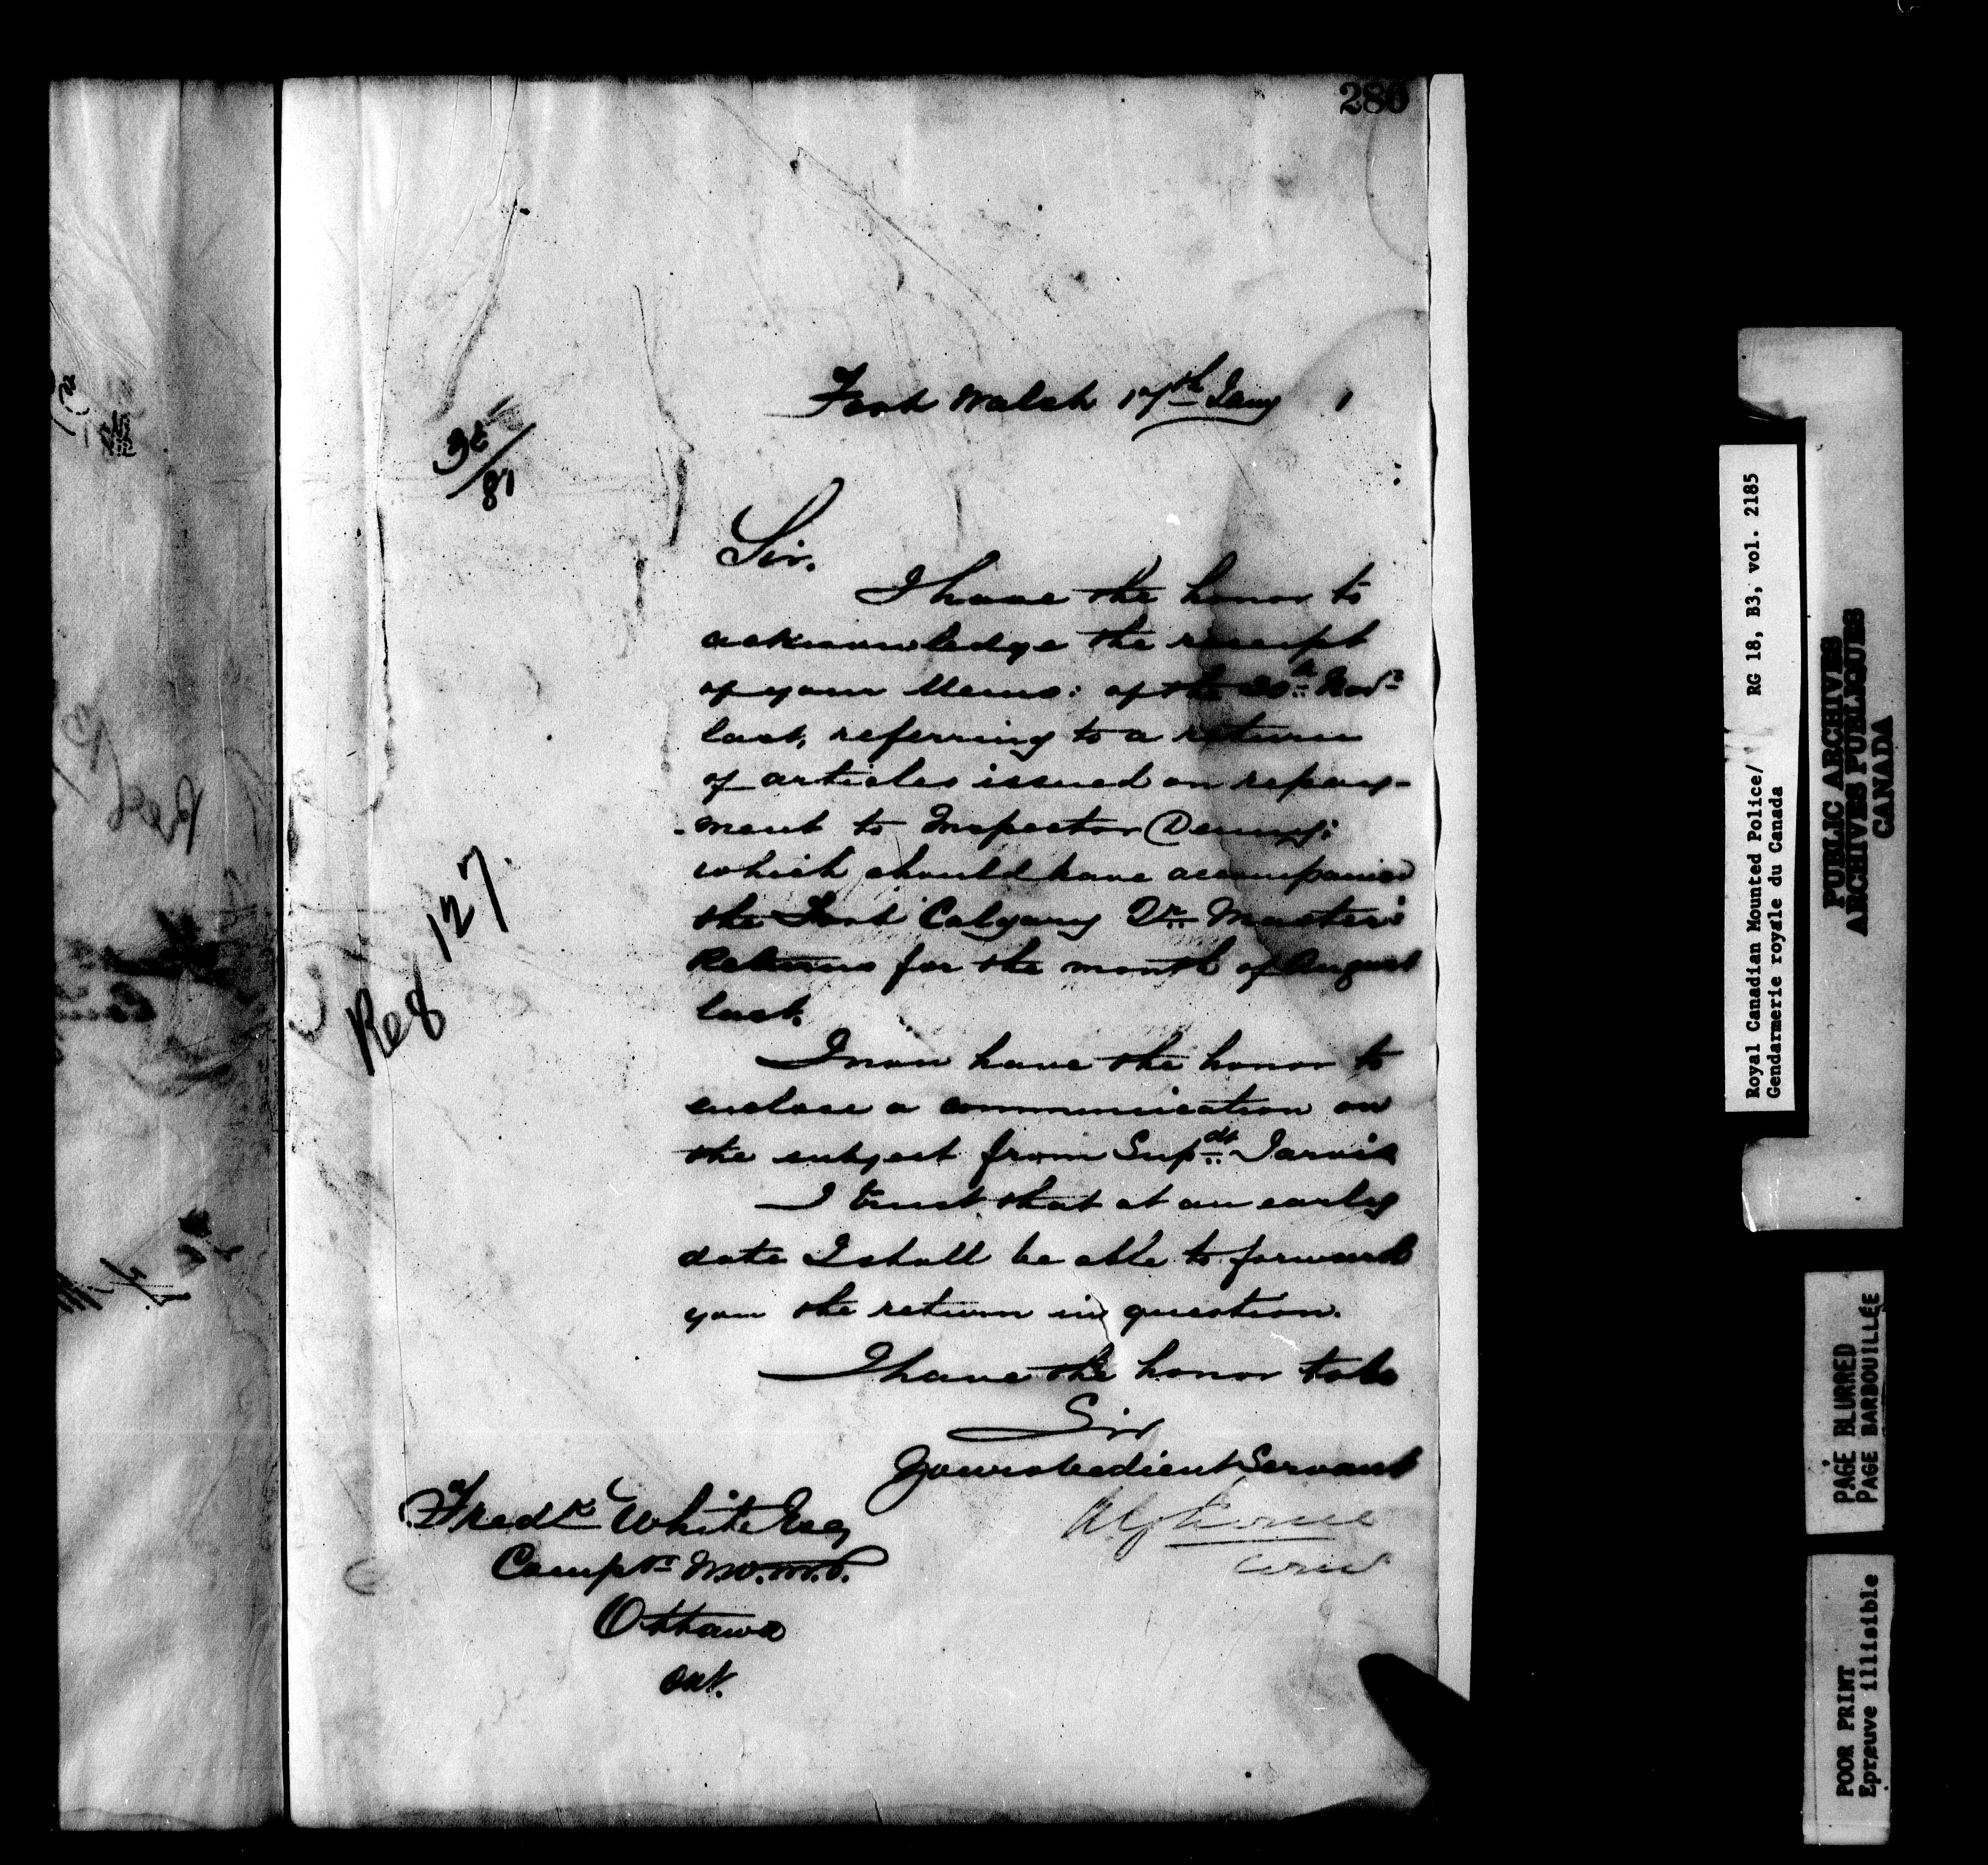 280
Fort Walsh 17th Jany 1
38/81
Sir.
I have the honor to
acknowledge the receipt
of your Memo: of the 20th Novr
last, referring to a return
of articles issued on repay-
-ment to Inspector Denny:
which should have accompanied
the Fort Calgary Qr. Master's
Returns for the month of August
last.
Reg 127.
I now have the honor to
enclose a communication on
the subject from Supdt Jarvis
I trust that at an early
date I shall be able to forward
you the return in question.
I have the honor to be
Sir
Your obedient Servant
Fredk White Esq
Compt N.W.M.P.
Ottawa
Ont.
Royal Canadian Mounted Police/ RG 18, B3, vol. 2185
Gendarmerie royale du Canada
PUBLIC ARCHIVES
ARCHIVES PUBLIQUES
CANADA
PAGE BLURRED
PAGE BARBOUILLÉE
POOR PRINT
Epreuve illisible